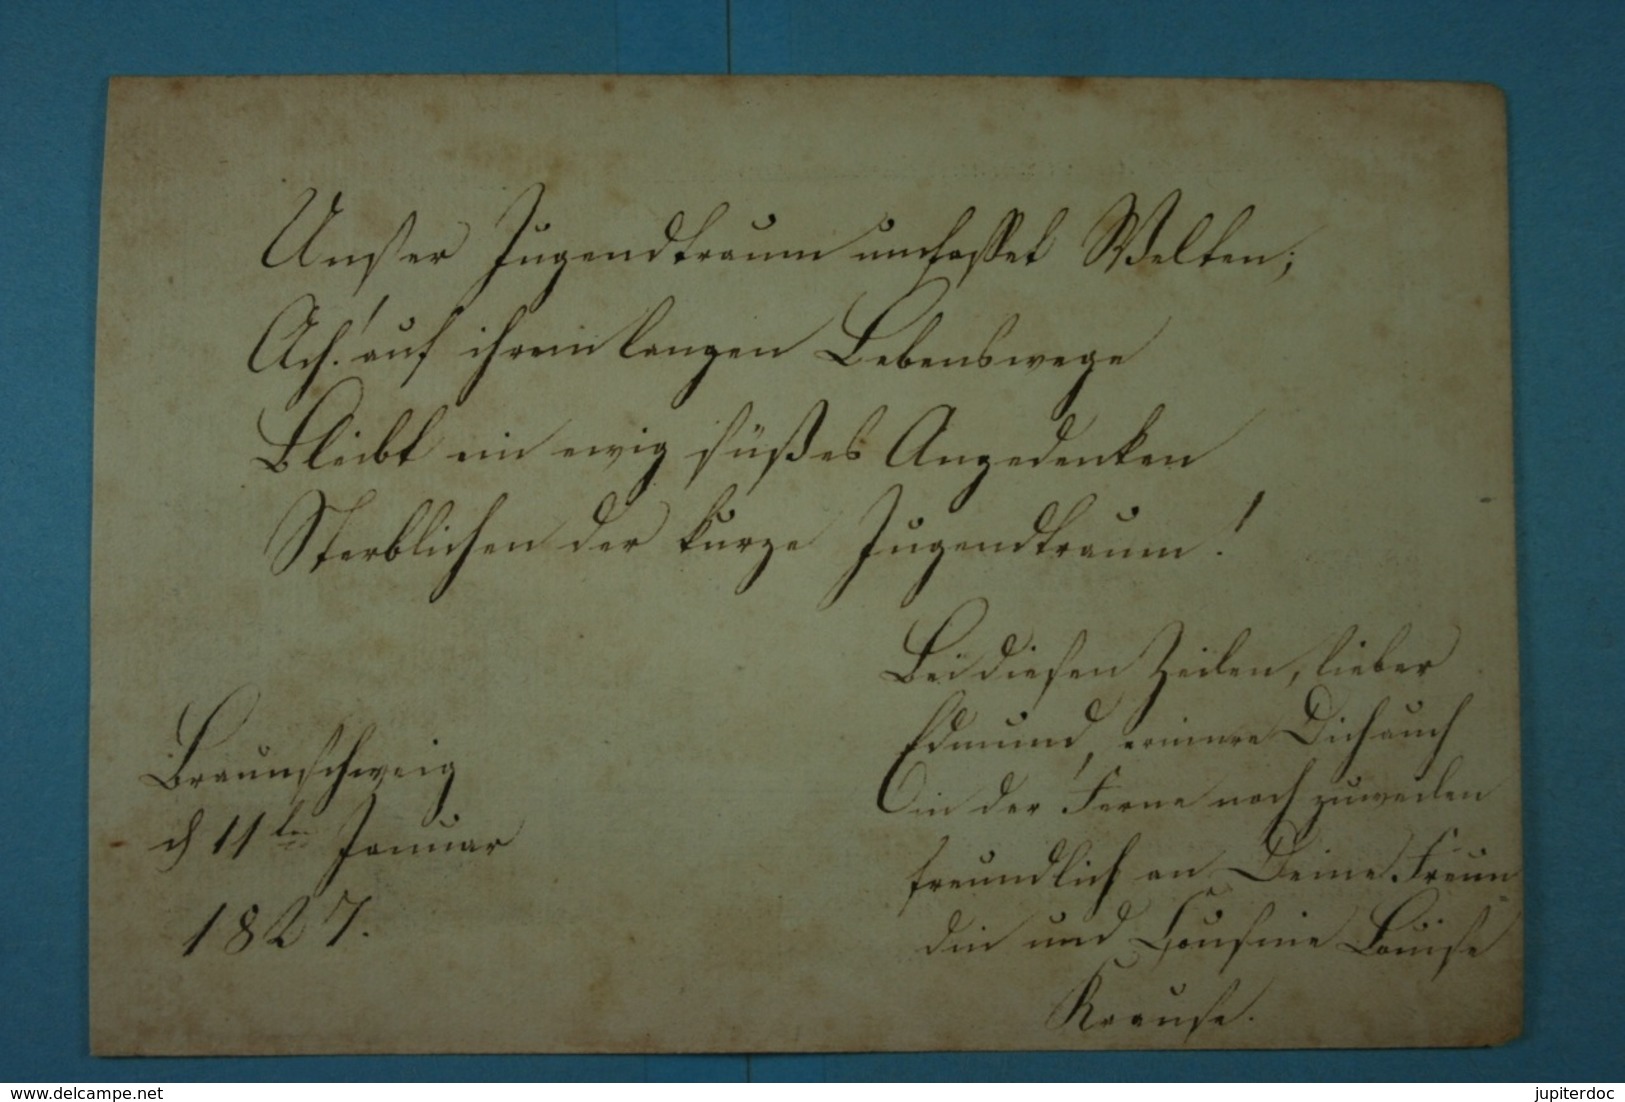 Unser Jugendtraum umfasset Welten;
Ach! auf ihrem langen Lebenswege
Bleibt ein ewig süßes Angedenken
Sterblichen der kurze Jugendtraum!
Bei diesen Zeilen, lieber
Edmund, erinnre Dich auch
in der Ferne noch zuweilen
freundlich an Deine Freun
din und Cousine Louise
Krause.
Braunschweig
d 11ten Januar
1827.
www.delcampe.net
jupiterdoc